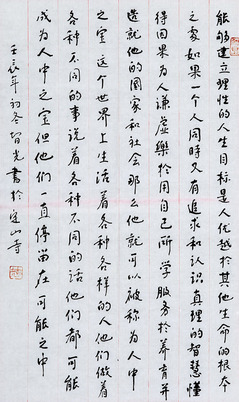 能够建立理性的人生目标是人优越於其他生命的根本
之处如果一个人同時又有追求和认识真理的智慧懂
得因果为人谦虚樂於用自己所学服务於养育并
造就他的國家和社会那么他就可以被称为人中
之宝这个世界上生活着各种各样的人他们做着
各种不同的事说着各种不同的话他们都可能
成为人中之宝但他们一直停留在可能之中
壬辰年初冬智光書於定山寺